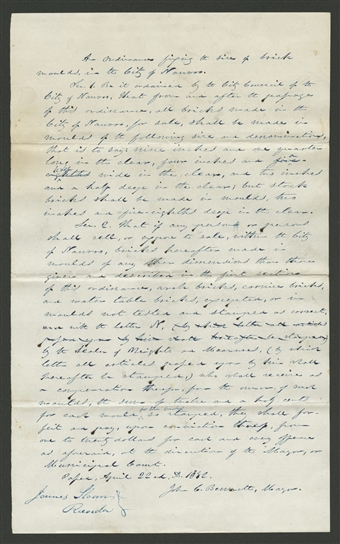 An Ordinance fixing the size of brick
moulds, in the City of Nauvoo.
Sec. 1. Be it ordained by the City Council of the
City of Nauvoo, that from and after the passage
of this ordinance, all bricks made in the
City of Nauvoo, for sale, shall be made in
moulds of the following size and denomination,
that is to say: nine inches and one quarter
long in the clear, four inches and five
eighths wide in the clear, and two inches
and a half deep in the clear; but stock
bricks shall be made in moulds, two
inches and five-eighths deep in the clear.
Sec. 2. That if any person or persons
shall sell, or expose to sale, within the City
of Nauvoo, bricks hereafter made in
moulds of any other dimensions than those
given and described in the first section
of this ordinance, arch bricks, cornice bricks,
and water table bricks, excepted, or in
moulds not tested and stamped as correct,
and with the letter N,
by the Sealer of Weights and Measures, (by which
letter all articles
hereafter be stamped,) who shall receive as
a compensation therefor, from the owner of such
moulds, the sum of twelve and a half cents
for each mould, so stamped, they shall for-
feit and pay, upon conviction thereof, from
one to twenty dollars for each and every offence
as aforesaid, at the discretion of the Mayor, or
Municipal Court.
Passed, April 22nd, D. 1842.
James Sloan John C. Bennett, Mayor.
Recorder